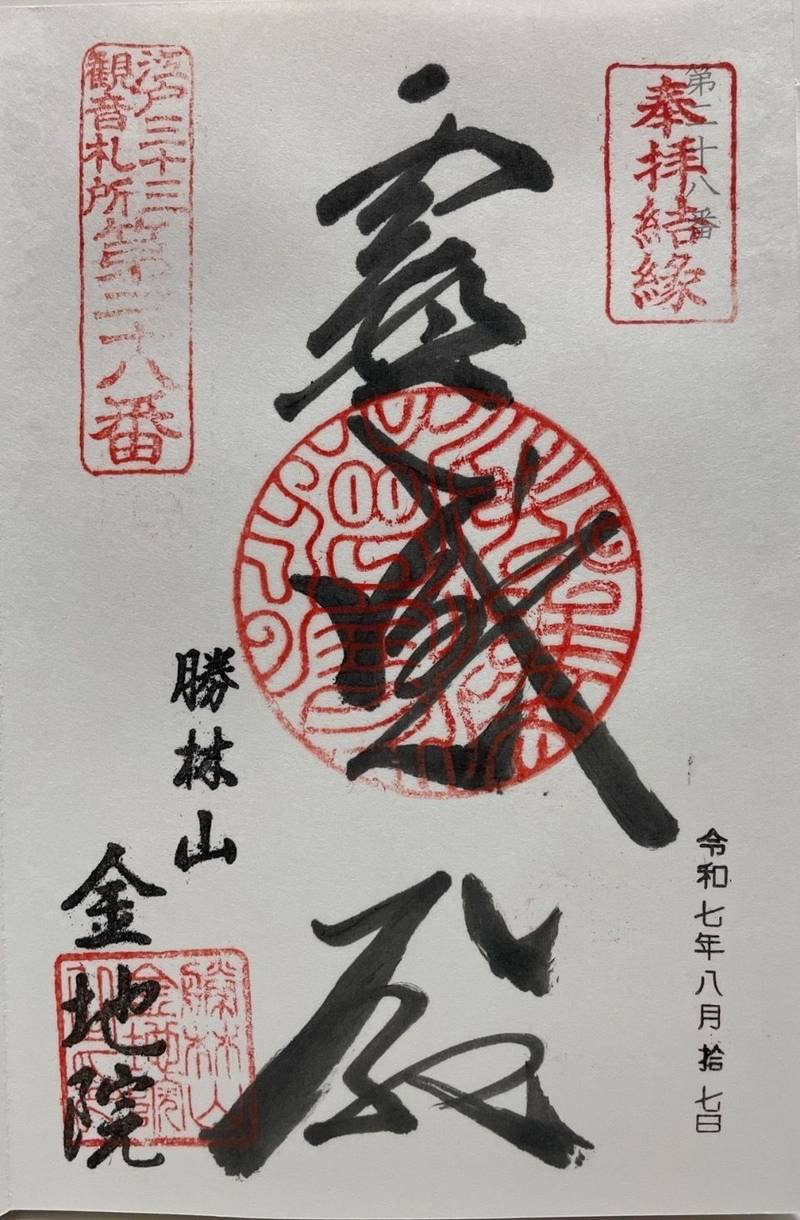 第二十八番
奉拝結縁
令和七年八月拾七日
殿
江戸三十三
観音札所
第二十八番
勝林山
金地院
勝林山
金地院